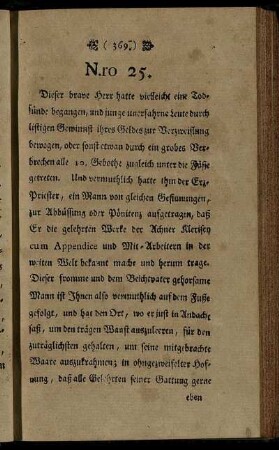 ( 369 )
N.ro 25.
Dieser brave Herr hatte vielleicht eine Tod-
sünde begangen, und junge unerfahrne Leute durch
lestigen Gewinnst ihres Geldes zur Verzweiflung
bewogen, oder sonst etwan durch ein grobes Ver-
brechen alle 10. Gebothe zugleich unter die Füße
getreten. Und vermuthlich hatte ihm der Erz-
Priester, ein Mann von gleichen Gesinnungen,
zur Abbüssung oder Pönitenz aufgetragen, daß
Er die gelehrten Werke der Achner Klerisey
cum Appendice und Mit-Arbeitern in der
weiten Welt bekannt mache und herum trage.
Dieser fromme und dem Beichtvater gehorsame
Mann ist Ihnen also vermuthlich auf dem Fuße
gefolgt, und hat den Ort, wo er just in Andacht
saß, um den trägen Wanst auszuleeren, für den
zuträglichsten gehalten, um seine mitgebrachte
Waare auszukrahmen; in ohngezweifelter Hof-
nung, daß alle Gelehrten seiner Gattung gerne
eben